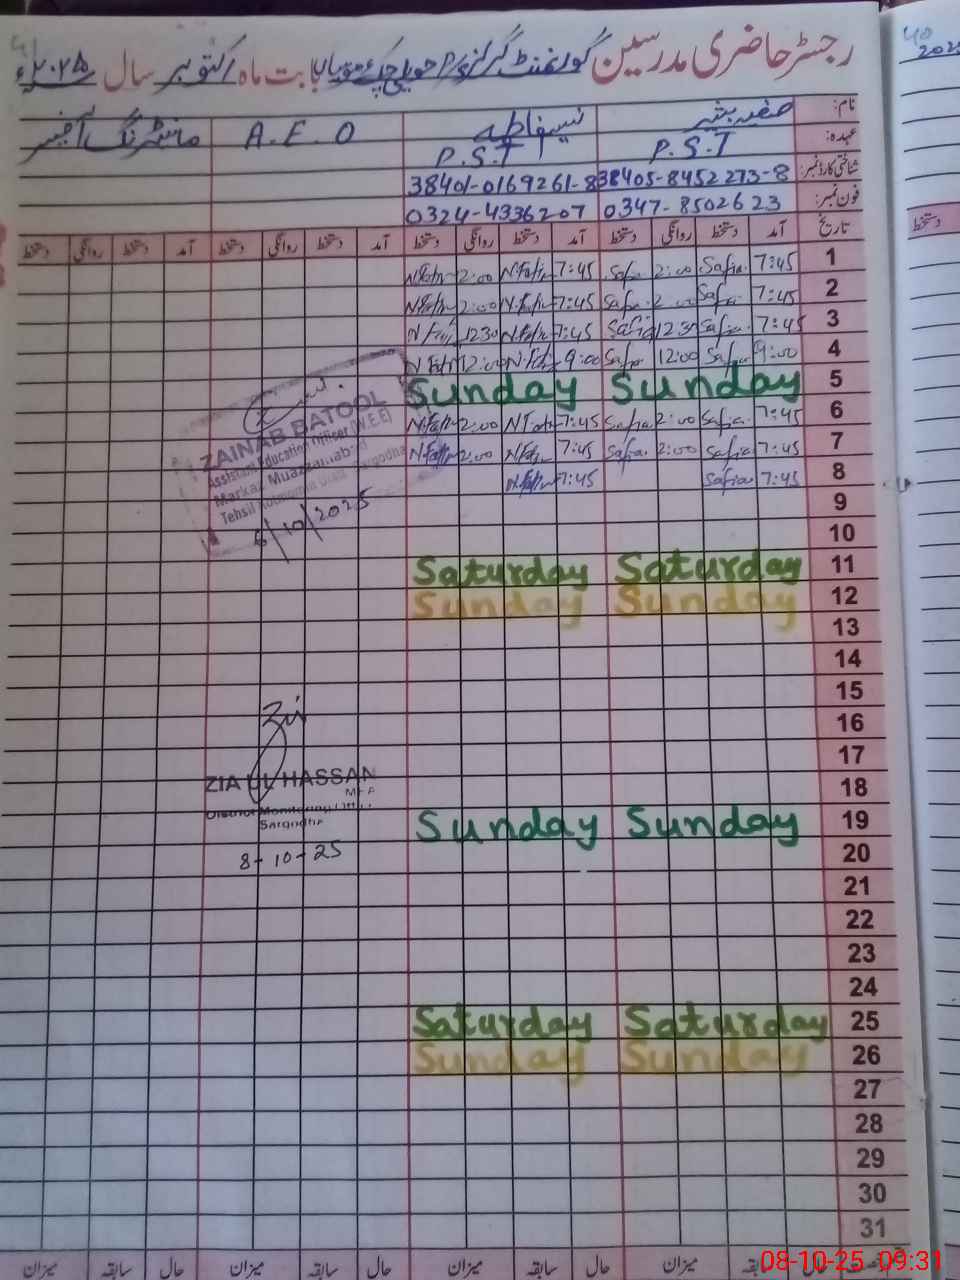 رجسٹر حاضری مدرسین گورنمنٹ گرلز بابت ماہ اکتوبر سال ۲۰۲۵ء
نام: صفیہ بشیر نسیم فاطمہ A.E.O مانیٹرنگ آفیسر
عہدہ: P.S.T P.S.T
شناختی کارڈ نمبر: 38405-8452273-8 38401-0169261-8
فون نمبر: 0347-8502623 0324-4336207
تاریخ آمد دستخط روانگی دستخط آمد دستخط روانگی دستخط آمد دستخط روانگی دستخط آمد دستخط روانگی دستخط
1 7:45 Safia 2:00 Safia 7:45 N.Fatm 2:00 N.Fatm
2 7:45 Safia 2:00 Safia 7:45 N.Fatm 2:00 N.Fatm
3 7:45 Safia 12:30 Safia 7:45 N.Fatm 12:30
4 9:00 Safia 12:00 Safia 9:00 N.Fatm 12:00 N.Fatm
5 Sunday Sunday
6 7:45 Safia 2:00 Safia 7:45 N.Fatm 2:00 N.Fatm
7 7:45 Safia 2:00 Safia 7:45 N.Fatm 2:00 N.Fatm
8 7:45 Safia 7:45 N.Fatm
9
10
11 Saturday Saturday
12 Sunday Sunday
13
14
15
16
17
18
19 Sunday Sunday
20
21
22
23
24
25 Saturday Saturday
26 Sunday Sunday
27
28
29
30
31
ZAINAB BATOOL
Assistant Education Officer (W.EE)
Markaz Muazzamabad
Tehsil Kotmomin Distt. Sargodha
6/10/2025
ZIA UL HASSAN
MEA
District Monitoring
Sargodha
8-10-25
میزان سابقہ حال میزان سابقہ حال میزان سابقہ حال میزان
2025
دستخط
08-10-25 09:31